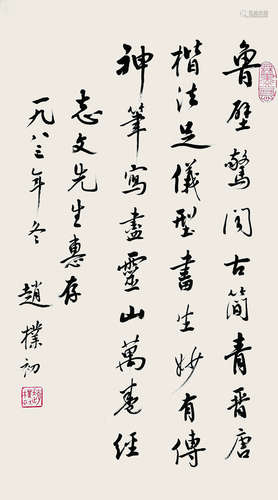 魯壁驚聞古簡青晉唐
楷法足儀型書生妙有傳
神筆寫盡靈山萬卷經
志文先生惠存
一九八三年冬 趙樸初